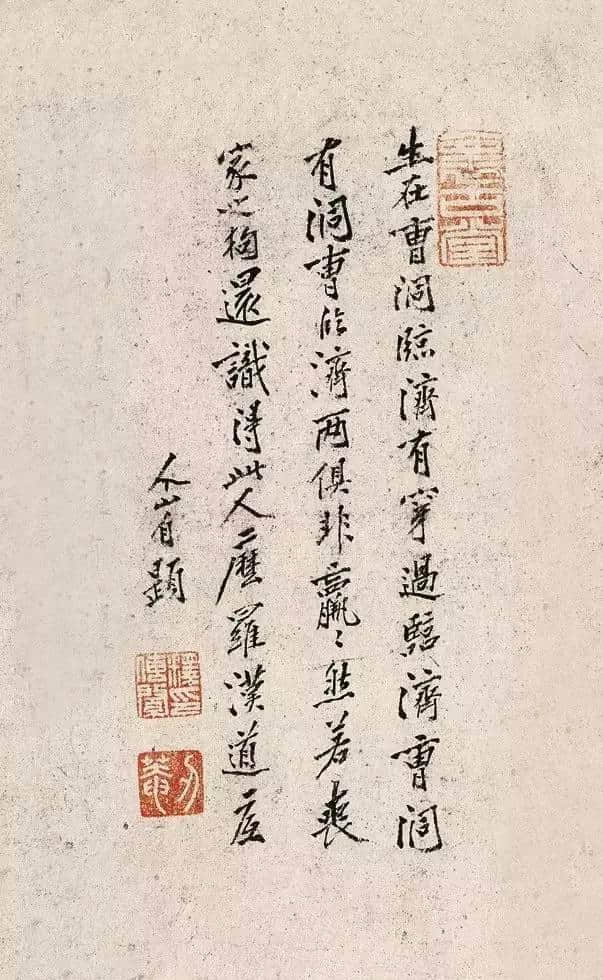 生在曹洞臨濟有穿過臨濟曹洞
有洞曹臨濟兩俱非羸〻然若喪
家之狗還識得此人麼羅漢道底
个山自題
釋傳綮印
刃菴